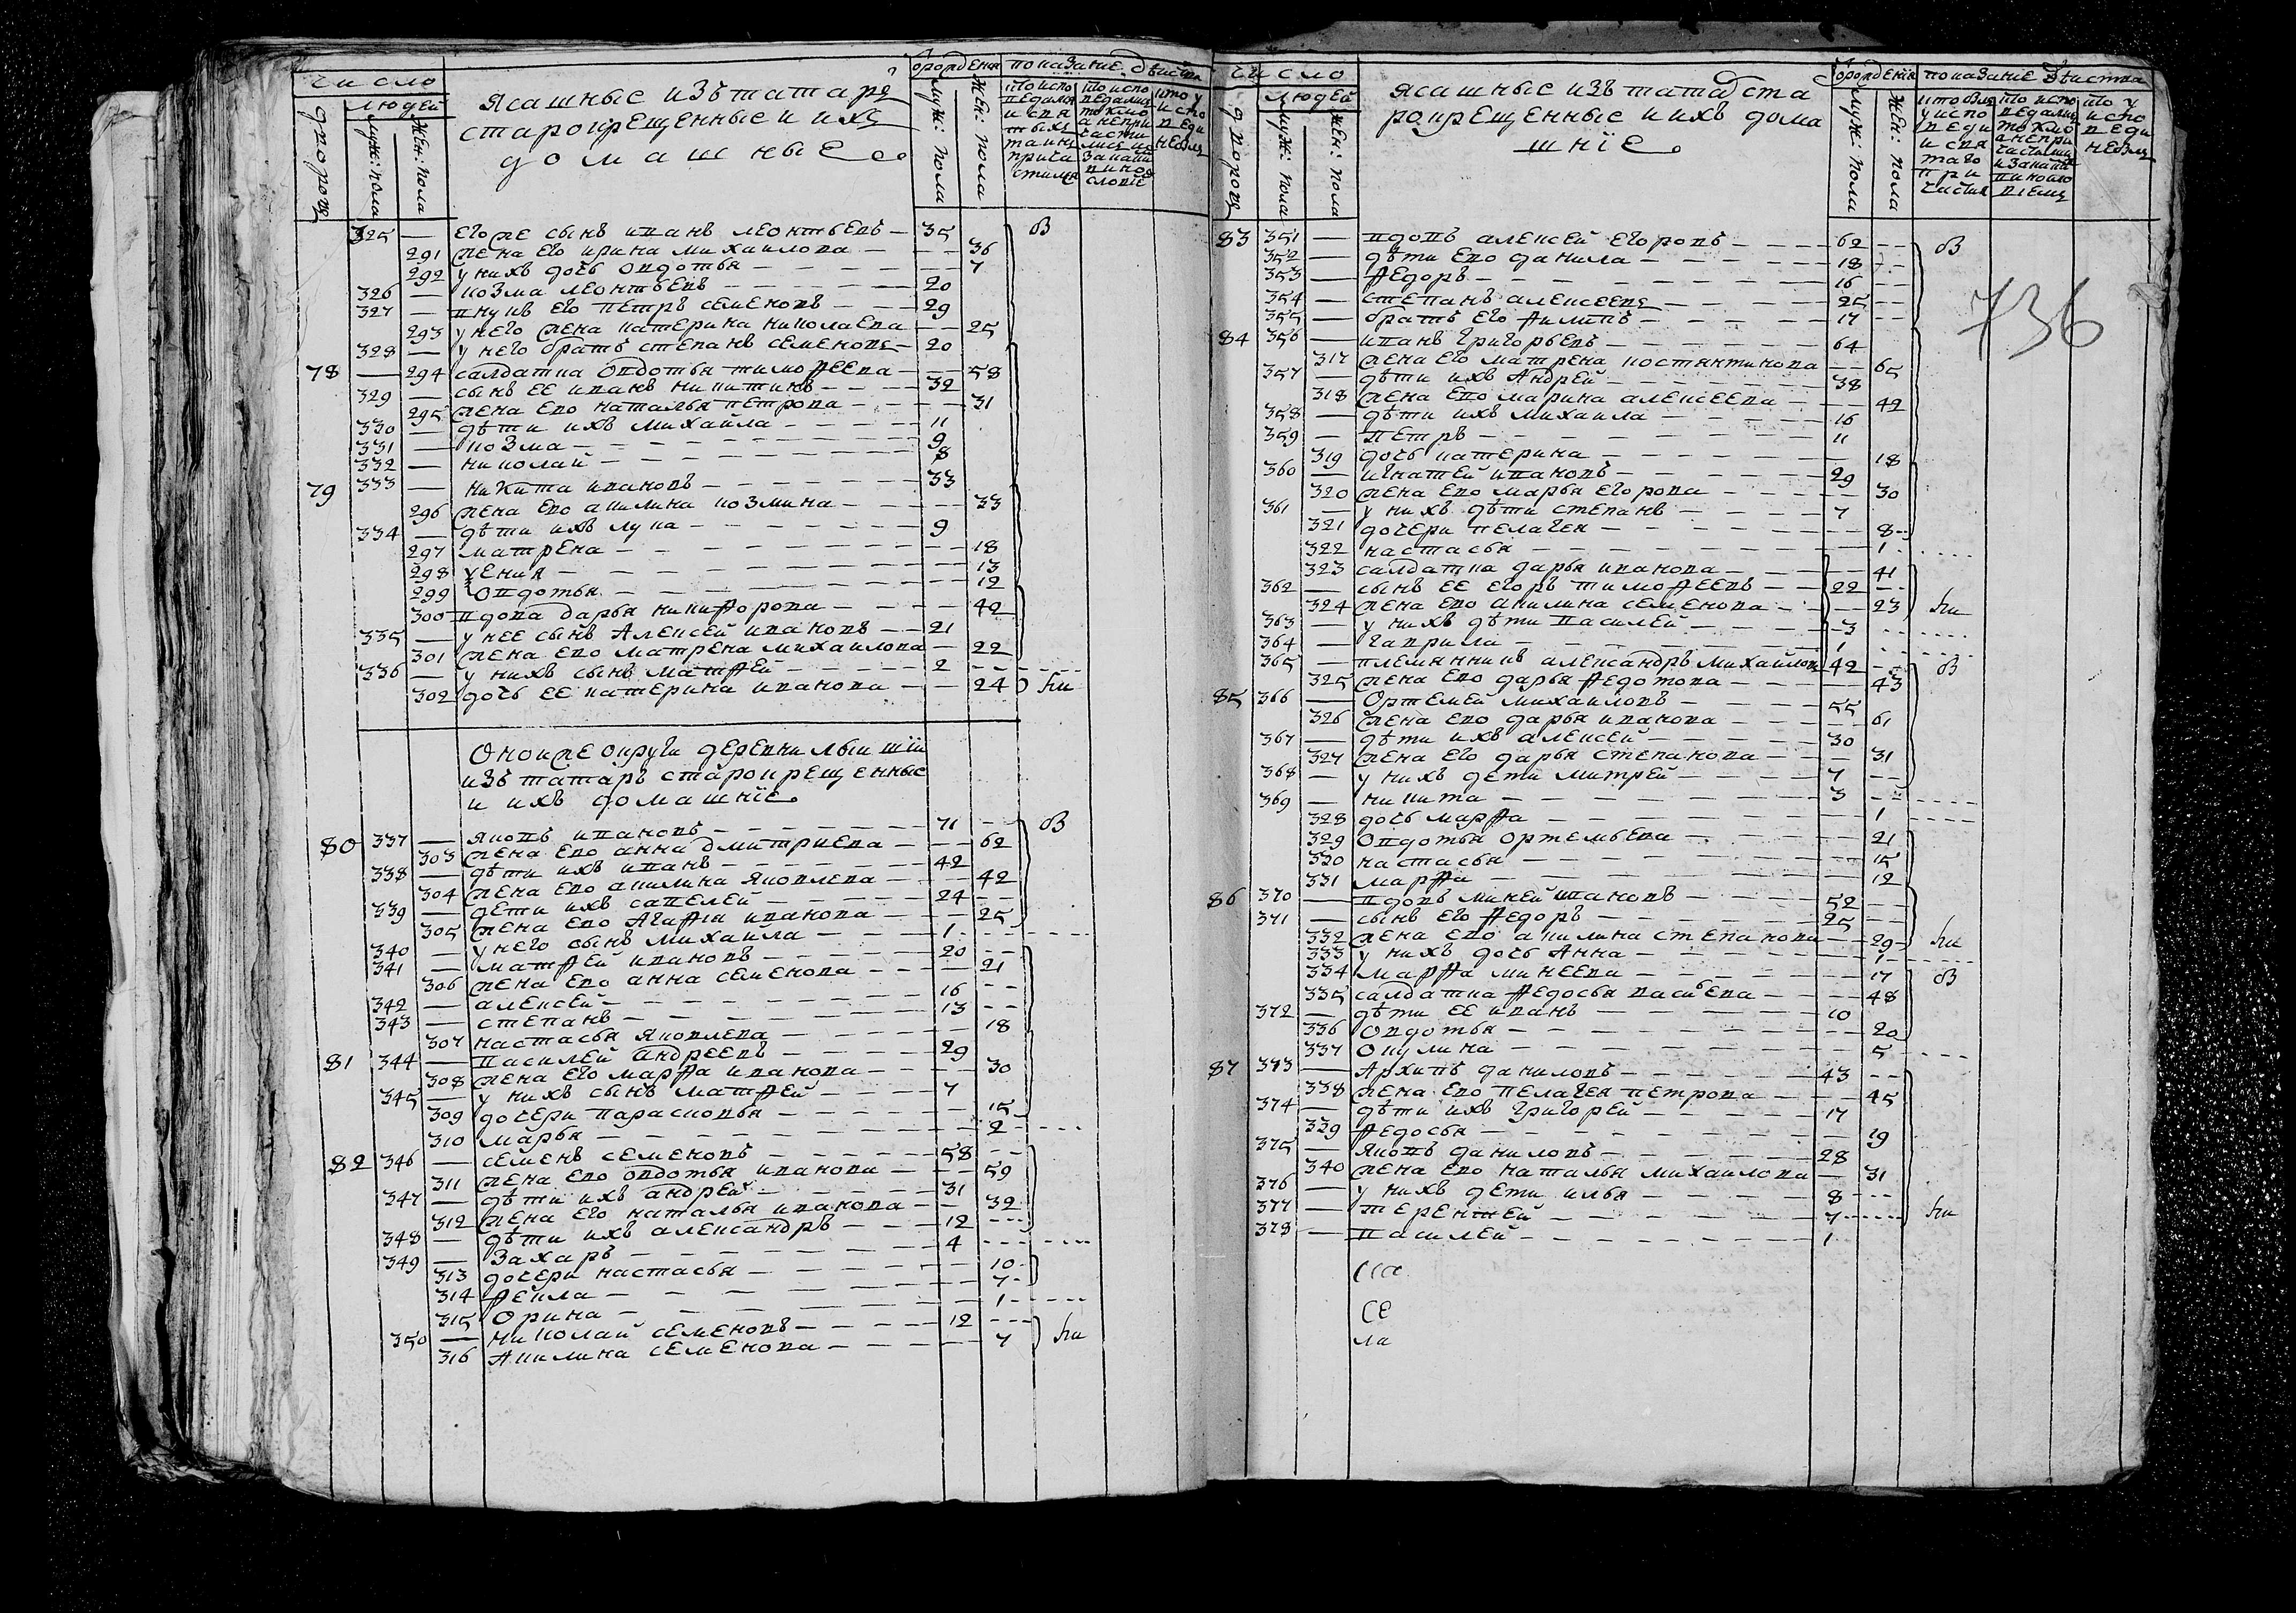 число
людей
дворовъ
муж: пола
жен: пола
ясашные изъ татаръ
старокрещенные и ихъ
домашные
о рождении
муж: пола
жен: пола
показание действа
325 — его же сынъ иванъ леонтьевъ — 35
291 жена его ирина михаилова — 36
292 у нихъ дочь овдотья — 7
326 — козма леонтьевъ — 20
327 — внукъ его петръ семеновъ — 29
293 у него жена катерина николаева — 25
328 — у него братъ степанъ семеновъ — 20
78 — 294 салдатка овдотья тимофеева — 58
329 — сынъ ее иванъ никитинъ — 32
295 жена ево наталья петрова — 31
330 — дѣти ихъ михаила — 11
331 — козма — 9
332 — николай — 8
79 333 — никита ивановъ — 33
296 жена ево акилина козмина — 33
334 — дѣти ихъ лука — 9
297 матрена — 18
298 — 13
299 овдотья — 12
300 вдова дарья никифорова — 42
335 — у нее сынъ алексей ивановъ — 21
301 жена ево матрена михаилова — 22
336 — у нихъ сынъ матфей — 2
302 дочь ее катерина иванова — 24
оной же округи деревни
изъ татаръ старокрещенные
и ихъ домашніе
80 337 — яковъ ивановъ — 71
303 жена ево анна дмитриева — 62
338 — дѣти ихъ иванъ — 42
304 жена ево акилина яковлева — 42
339 — дети ихъ савелей — 24
305 жена ево агафья иванова — 25
340 — у него сынъ михаила — 1
341 — матфей ивановъ — 20
306 жена ево анна семенова — 21
342 — алексей — 16
343 — степанъ — 13
307 настасья яковлева — 18
81 344 — василей андреевъ — 29
308 жена его марфа иванова — 30
345 — у нихъ сынъ матфей — 7
309 дочери парасковья — 15
310 марья — 2
82 346 — семенъ семеновъ — 58
311 жена ево овдотья иванова — 59
347 — дѣти ихъ андрей — 31
312 жена его наталья иванова — 32
348 — дѣти ихъ александръ — 12
349 — захаръ — 4
313 дочери настасья — 10
314 фекла — 7
315 орина — 1
350 — николай семеновъ — 12
316 акилина семенова — 7
число
людей
дворовъ
муж: пола
жен: пола
ясашные изъ татаръ ста
рокрещенные и ихъ дома
шніе
о рожденіи
муж: пола
жен: пола
показание действа
736
83 351 — вдовъ алексей егоровъ — 62
352 — дѣти ево данила — 18
353 — федоръ — 16
354 — степанъ алексеевъ — 25
355 — братъ его филипъ — 17
84 356 — иванъ григорьевъ — 64
317 жена его матрена костянтинова — 65
357 — дѣти ихъ андрей — 38
318 жена ево марина алексеева — 42
358 — дѣти ихъ михаила — 16
359 — петръ — 11
319 дочь катерина — 18
360 — игнатей ивановъ — 29
320 жена ево марья егорова — 30
361 — у нихъ дѣти степанъ — 7
321 дочери пелагея — 8
322 настасья — 1
323 салдатка дарья иванова — 41
362 — сынъ ее егоръ тимофеевъ — 22
324 жена ево акилина семенова — 23
363 — у нихъ дѣти василей — 3
364 — гаврила — 1
365 — племянникъ александръ михайловъ 42
325 жена ево дарья федотова — 43
85 366 — ортемей михаиловъ — 55
326 жена ево дарья иванова — 61
367 — дѣти ихъ алексей — 30
327 жена его дарья степанова — 31
368 — у нихъ дети митрей — 7
369 — никита — 3
328 дочь марфа — 1
329 овдотья ортемьева — 21
330 настасья — 15
331 марфа — 12
86 370 — вдовъ миней ивановъ — 52
371 — сынъ его федоръ — 25
332 жена ево акилина степанова — 29
333 у нихъ дочь анна — 1
334 марфа минеева — 17
335 салдатка федосья васильева — 48
372 — дѣти ее иванъ — 10
336 овдотья — 20
337 окулина — 5
87 373 — архипъ даниловъ — 43
338 жена ево пелагея петрова — 45
374 — дѣти ихъ григорей — 17
339 федосья — 19
375 — яковъ даниловъ — 28
340 жена ево наталья михаилова — 31
376 — у нихъ дети илья — 8
377 — терентей — 7
378 — василей — 1